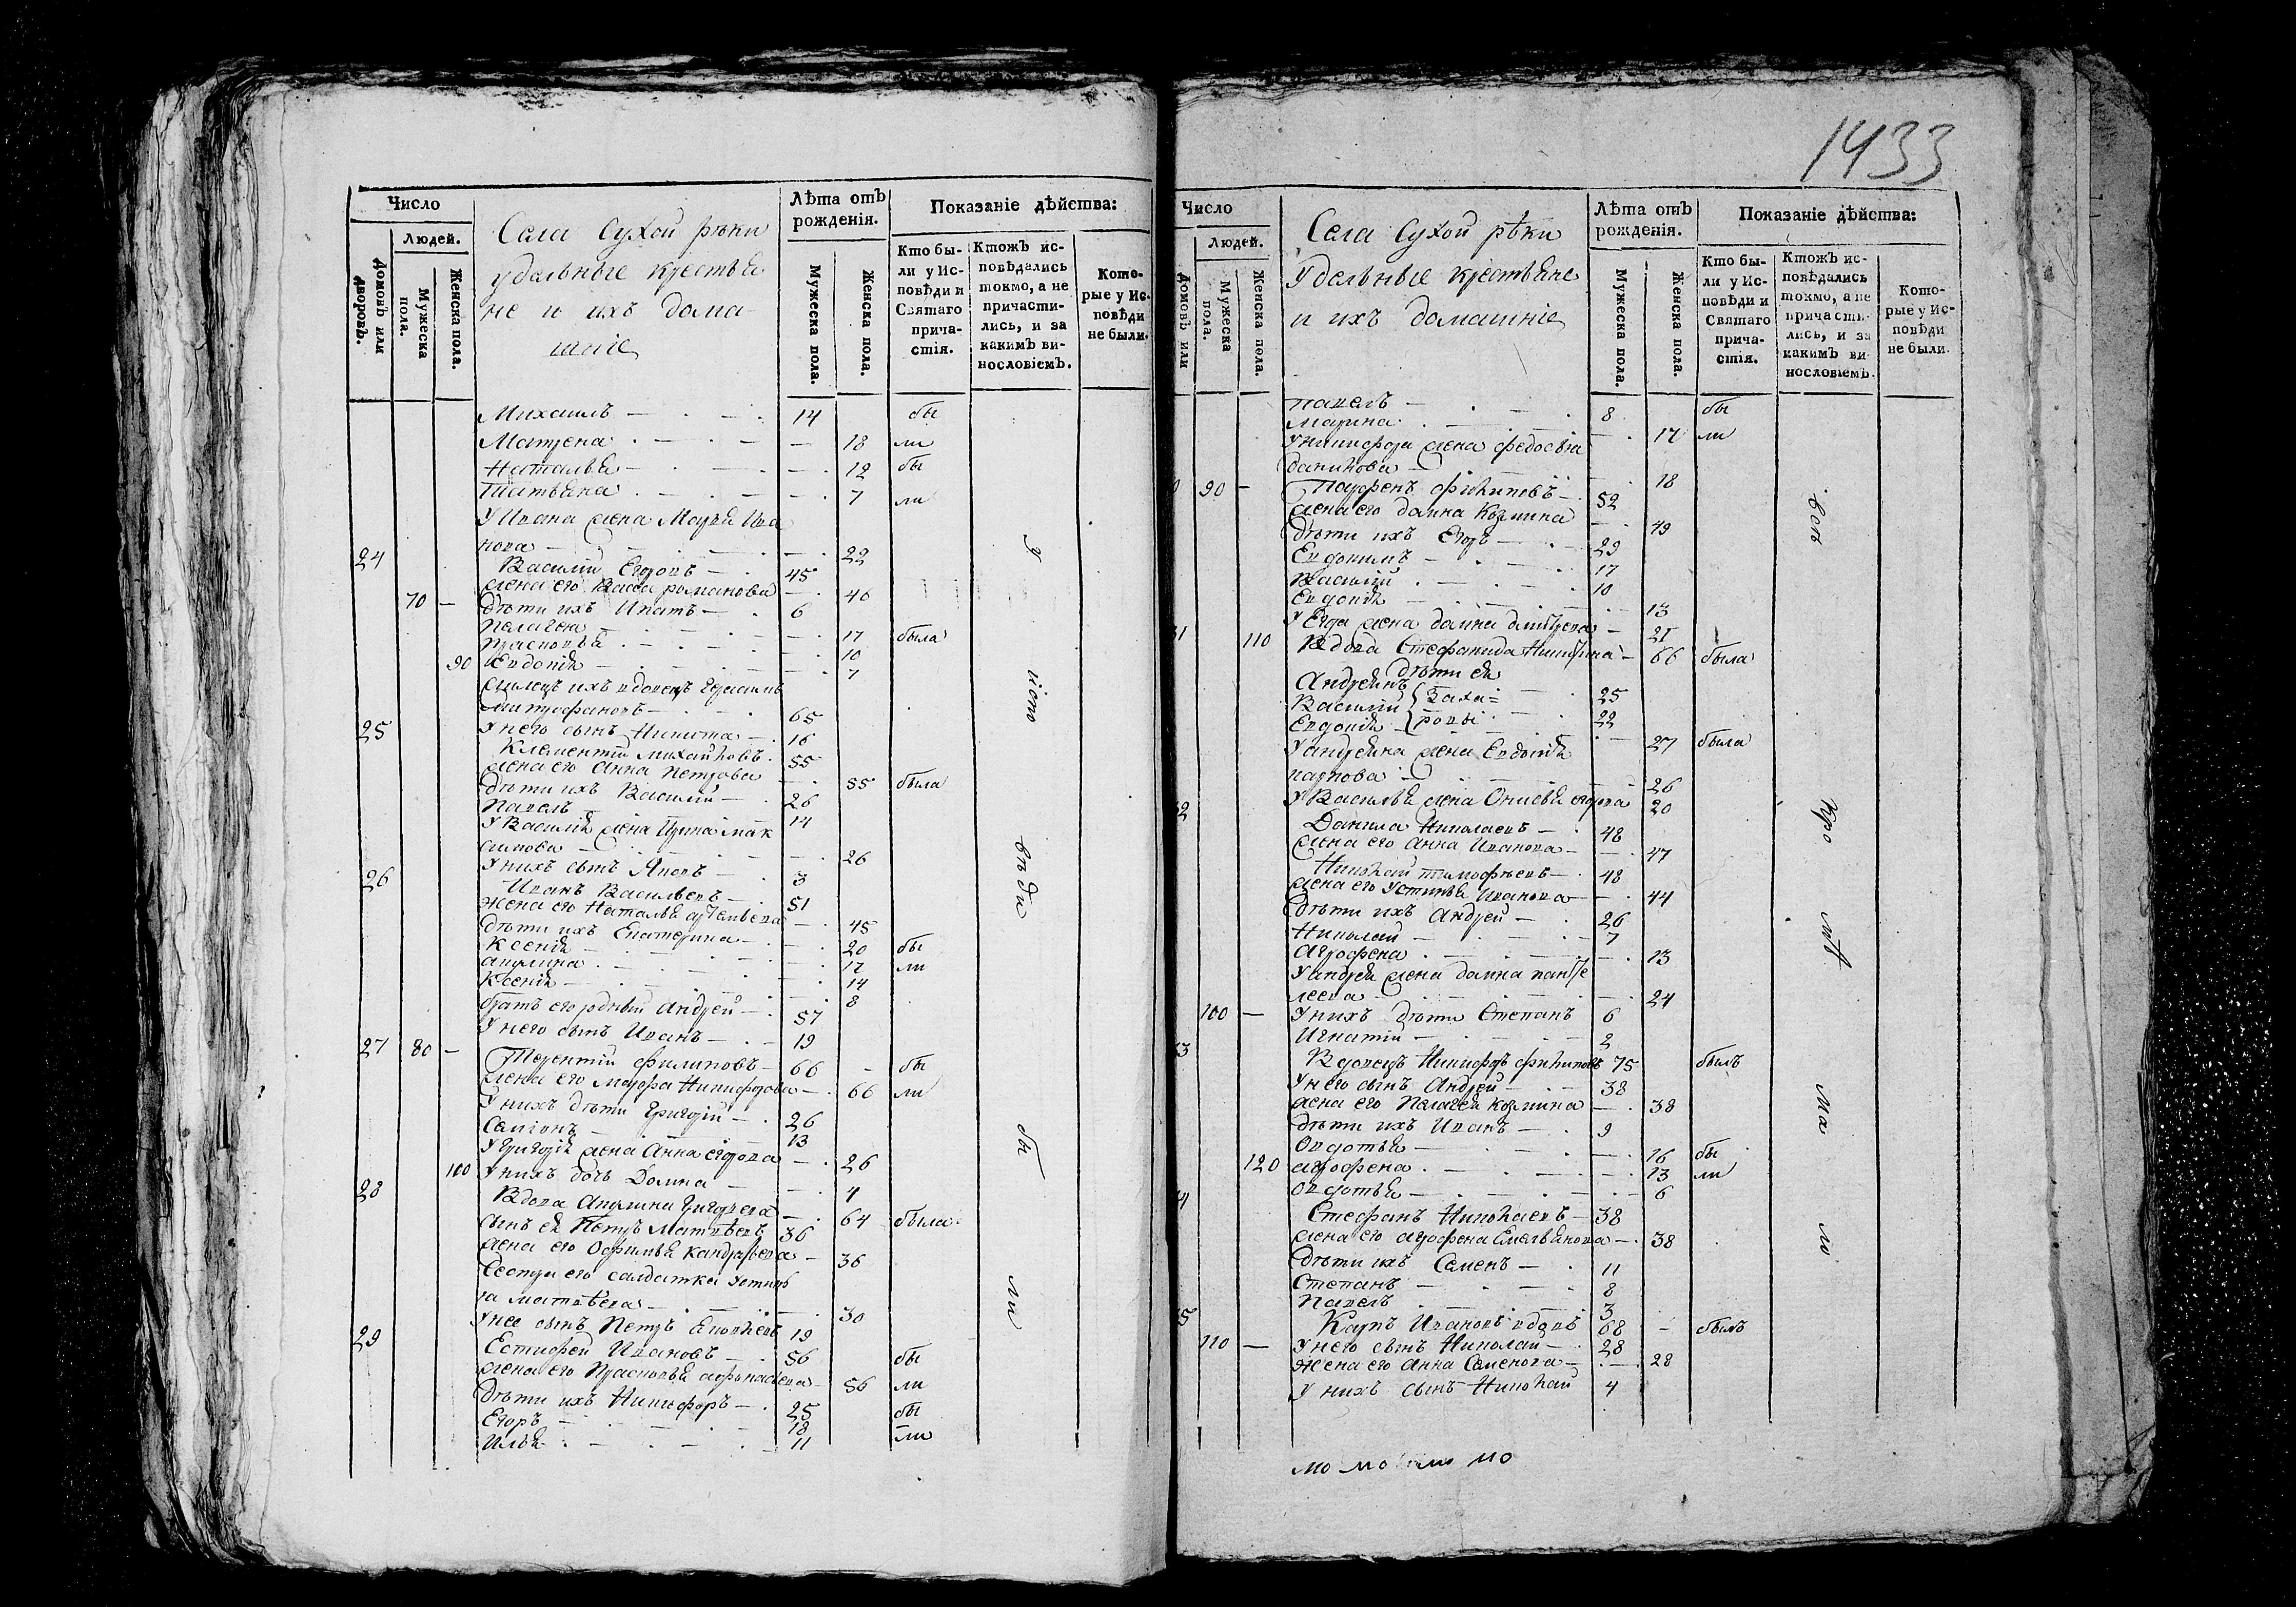 1433
Число
Людей.
Домовъ или дворовъ.
Мужеска пола.
Женска пола.
Села Сухой рѣки
удѣльные крестья
не и ихъ дома
шніе
Лѣта отъ рожденія.
Мужеска пола.
Женска пола.
Показаніе дѣйства:
Кто бы-
ли у Ис-
повѣди и
Святаго
прича-
стія.
Ктожъ ис-
повѣдались
токмо, а не
причасти-
лись, и за
какимъ ви-
нословіемъ.
Кото-
рые у Ис-
повѣди
не были.
Михаилъ 14 бы
Матрена 18 ли
Наталья 12 бы
Татьяна 7 ли
У Ивана жена Марья Ива
нова 22
24 Василий Егоровъ 45
жена его Васса романова 40
70 дѣти ихъ Игнатъ 6
Пелагея 17 была
Прасковья 10
90 Евдокія 7
вдовецъ Герасимъ
Митрофановъ 65
У него сынъ Никита 16
25 Клементій Михайловъ 55
жена его Анна Петрова 55 была
дѣти ихъ Василій 26
Павелъ 14
У Василія жена Ирина мак
симова 26
У нихъ сынъ Яковъ 3
26 Иванъ Васильевъ 51
жена его Наталья артемьева 45
дѣти ихъ Екатерина 20 бы
Ксенія 17 ли
акулина 14
Ксенія 8
братъ его родный Андрей 57
У него сынъ Иванъ 19
27 80 Терентій филиповъ 66 бы
жена его Марфа Никифорова 66 ли
У нихъ дѣти Григорій 26
Самсонъ 13
У Григорія жена Анна егорова 26
100 У нихъ дочь Домна 4
28 Вдова Акулина Григорьева 64 была
сынъ ея Петръ Матвѣевъ 36
жена его Офимья кандратьева 36
Сестра его салдатка устинь
я матвѣева 30
У нее сынъ Петръ Яковлевъ 19
29 Естифей Ивановъ 56 бы
жена его Прасковья афонасьева 56 ли
дѣти ихъ Никифоръ 25 бы
Егоръ 18 ли
Илья 11
Число
Людей.
Домовъ или
Мужеска пола.
Женска пола.
Села Сухой рѣки
Удѣльные крестьяне
и ихъ домашніе
Лѣта отъ рожденія.
Мужеска пола.
Женска пола.
Показаніе дѣйства:
Кто бы-
ли у Ис-
повѣди и
Святаго
прича-
стія.
Ктожъ ис-
повѣдались
токмо, а не
причасти-
лись, и за
какимъ ви-
нословіемъ.
Кото-
рые у Ис-
повѣди
не были.
Павелъ 8 бы
Марина 17 ли
У никифора жена федосья
данилова 18
90 Парфенъ филиповъ 52
жена его домна Козмина 49
дѣти ихъ Егоръ 29
Евдокимъ 17
Василій 10
Евдокія 13
У Егора жена домна дмитрева 21
110 Вдова Стефанида Никитина 66 была
дѣти ея
Андреянъ 25
Василий 22
Захаровы
Евдокія 27 была
У андреяна жена Евдокія
карпова 26
У Василья жена Онисья егорова 20
Данила Николаевъ 48
жена его Анна Иванова 47
Николай тимофѣевъ 48
жена его Устинья Иванова 44
дѣти ихъ Андрей 26
Николай 7
Агрофена 13
У андрея жена домна панте
леева 24
100 У нихъ дѣти Степанъ 6
Игнатій 2
Вдовецъ Никифоръ филиповъ 75 былъ
У него сынъ Андрей 38
жена его Пелагея козмина 38
дѣти ихъ Иванъ 9
Овдотья 16 бы
120 агрофена 13 ли
овдотья 6
Стефанъ Николаевъ 38
жена его агрофена Емельянова 38
дѣти ихъ Семенъ 11
Степанъ 8
Павелъ 3
Карпъ Ивановъ вдовъ 68 былъ
110 У него сынъ Николай 28
жена его Анна Семенова 28
У нихъ сынъ Николай 4